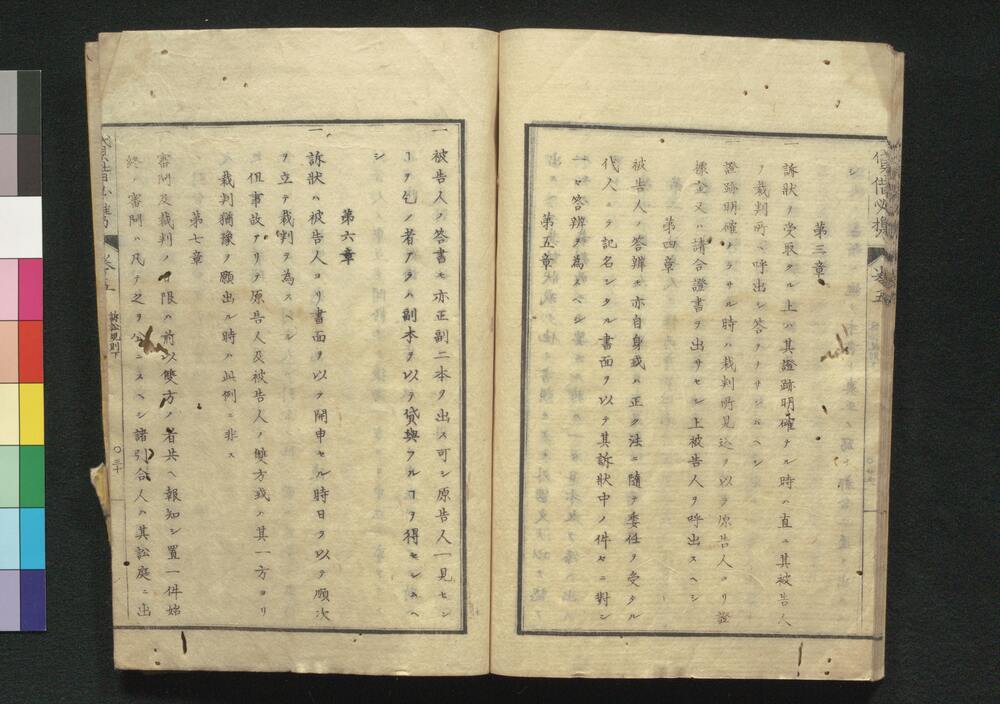 貸借必携
巻五
シ
第三章
一 訴状ヲ受取タル上ハ其證跡明確ナル時ハ直ニ其被告人
ヲ裁判所ヘ呼出シ答ヲナサシムヘシ
一 證跡明確ナラサル時ハ裁判所見込ヲ以テ原告人ヨリ證
據立又ハ請合證書ヲ出サセシ上被告人ヲ呼出スヘシ
第四章
被告人ノ答辨モ亦自身或ハ正ク法ニ隨テ委任ヲ受タル
代人ニテ記名シタル書面ヲ以テ其訴状中ノ件々ニ對シ
一々答辨ヲ為スヘシ
第五章
一 被告人ノ答書モ亦正副二本ヲ出ス可シ原告人一見セン
ヿヲ乞ノ者アラハ副本ヲ以テ貸與フルヿヲ得セシムヘ
シ
第六章
一 訴状ハ被告人ヨリ書面ヲ以テ開申セル時日ヲ以テ順次
ヲ立テ裁判ヲ為スヘシ
但事故アリテ原告人及被告人ノ雙方或ハ其一方ヨリ
裁判猶豫ヲ願出ル時ハ此例ニ非ス
第七章
一 審問及裁判ノ日限ハ前以雙方ノ者共ヘ報知シ置一件始
終ノ審問ハ凡テ之ヲ公ニスヘシ諸引合人ハ其訟庭ニ出
訴訟規則下
〇三十